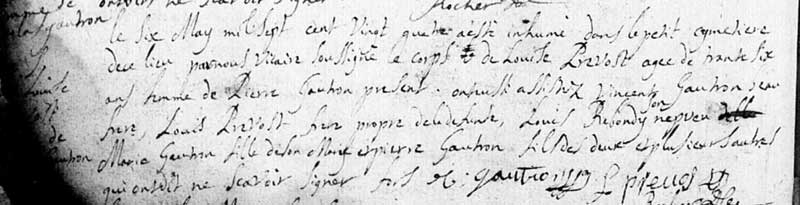 le six May mil sept cent vingt quatre a esté inhumé dans le petit cimetiere
de ce lieu par nous vicaire soussigné le corps de Louise Prevost agee de trante six
ans femme de Pierre Gautron present. ont assisté Vincent Gautron beau
frere, Louis Prevost frere propre de la defunte, Louis son nepveu
Marie Gautron fille de son Marie et pierre Gautron fils des deux et plusieurs autres
qui ont dit ne scavoir signer fors gautron L prevost